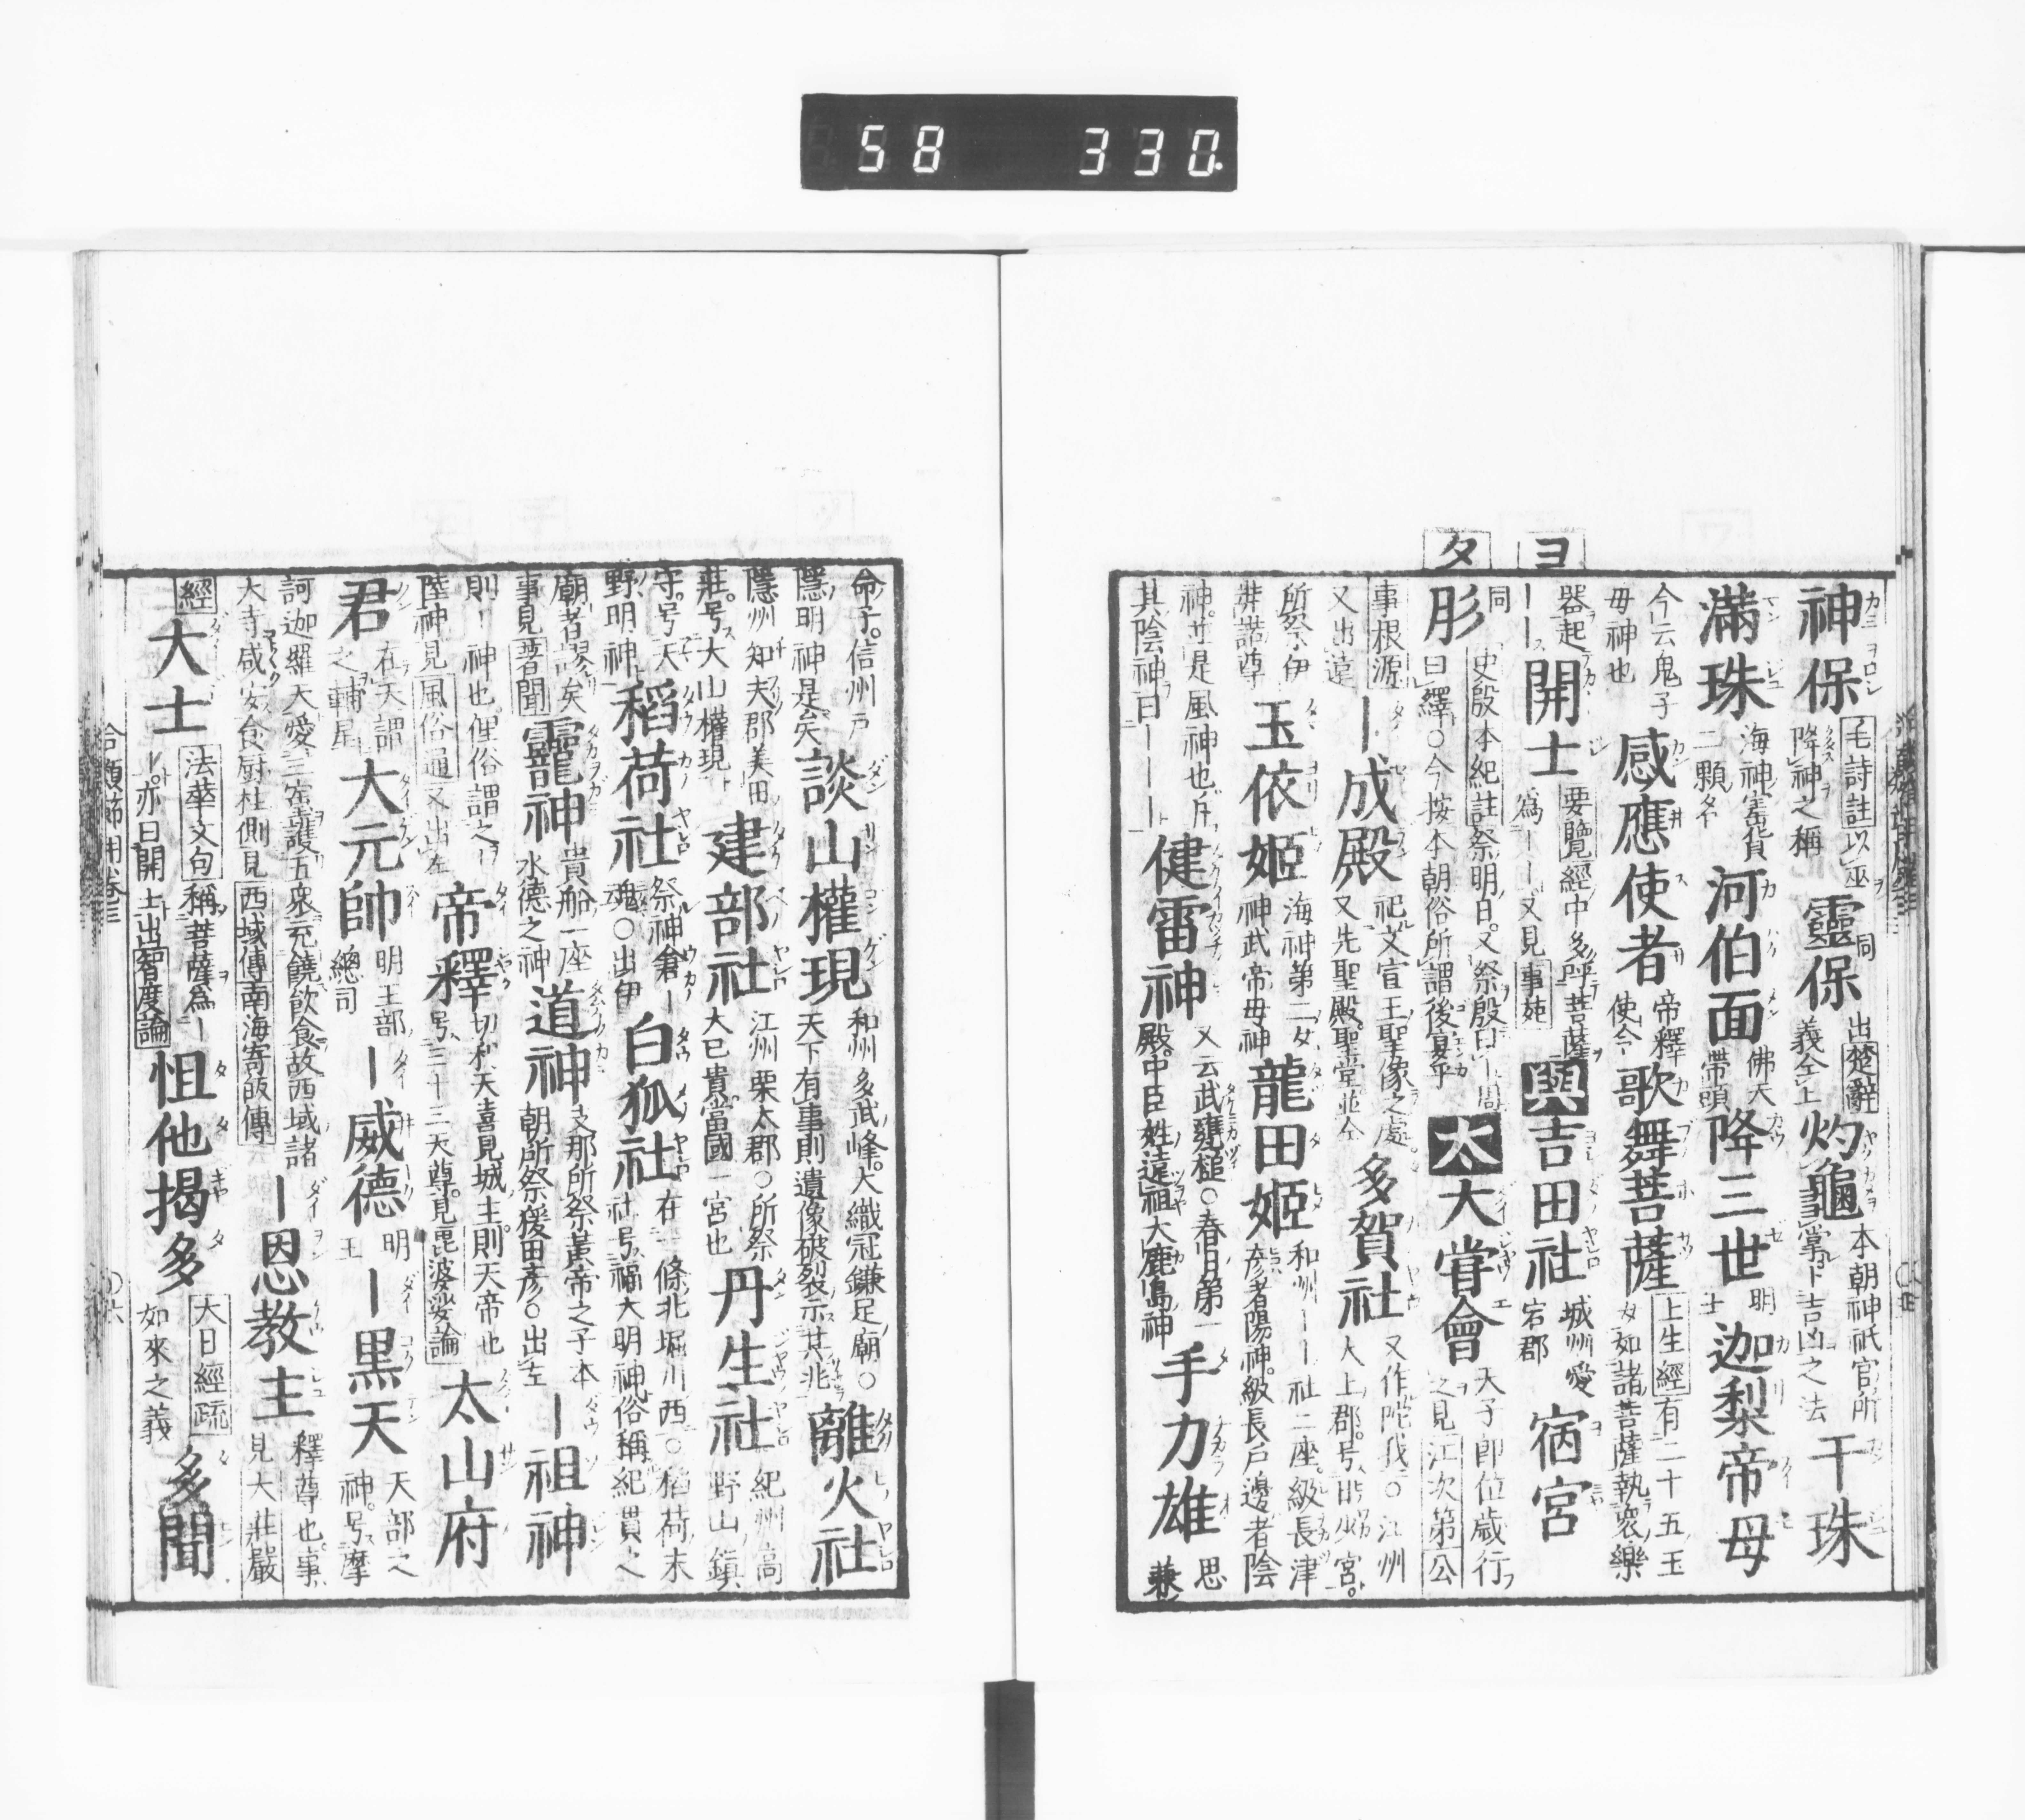 58 330
ヨ
タ
神保 毛詩註以巫降神之稱 靈保 同出楚辭義仝上 灼龜 本朝神祇官所掌卜吉凶之法 干珠
滿珠 海神寳貨二顆名 河伯面 佛天帶頭 降三世 明士 迦梨帝母
今云鬼子母神也 感應使者 帝釋使令 歌舞菩薩 上生經有二十五玉女如諸菩薩執衆樂
器起 開士 要覽經中多呼菩薩為｜｜又見事苑 與 吉田社 城州愛宕郡 宿宮
同
肜 史殷本紀註祭明日又祭殷曰｜周曰繹○今按本朝俗所謂後宴乎 太 大甞會 天子即位歳行之見江次第公
事根源又出遠 ｜成殿 祀文宣王聖像之處又先聖殿聖堂並仝 多賀社 又作陀我○江州犬上郡号比少宮
所祭伊弉諾尊 玉依姬 海神第二女神武帝母神 龍田姬 和州｜｜社二座級長津彦者陽神級長戸邊者陰
神並是風神也 其陰神曰｜｜｜ 健雷神 又云武甕槌○春日第一殿中臣姓遠祖大鹿島神 手力雄 思兼
命子信州戸隱明神是矣 談山權現 和州多武峰大織冠鎌足廟○天下有事則遺像破裂示其兆 離火社
隱州知夫郡美田莊号大山權現 建部社 江州栗太郡○所祭大已貴當國一宮也 丹生社 紀州高野山鎮
守号天野明神 稻荷社 祭神倉｜魂○出伊 白狐社 在一條北堀川西○稻荷末社号福大明神俗稱紀貫之
廟者謬矣事見著聞 靇神 貴船一座水德之神 道神 支那所祭黃帝之子本朝所祭猨田彦○出左 ｜祖神
則｜神也俚俗謂之陸神見風俗通又出左 帝釋 切利天喜見城主則天帝也号三｜三天尊見毘婆娑論 太山府
君 在天謂之輔星 大元帥 明王部總司 ｜威德 明王 ｜黒天 天部之神号摩
訶迦羅天愛三宝護五衆充饒飲食故西域諸大寺咸安食厨柱側見西域傳南海寄皈傳 ｜恩教主 釋尊也事見大莊嚴
經 大士 法華文句稱菩薩為｜｜亦曰開士出智度論 怛他揭多 大日經疏如來之義 多聞
合類節用卷三 ○六